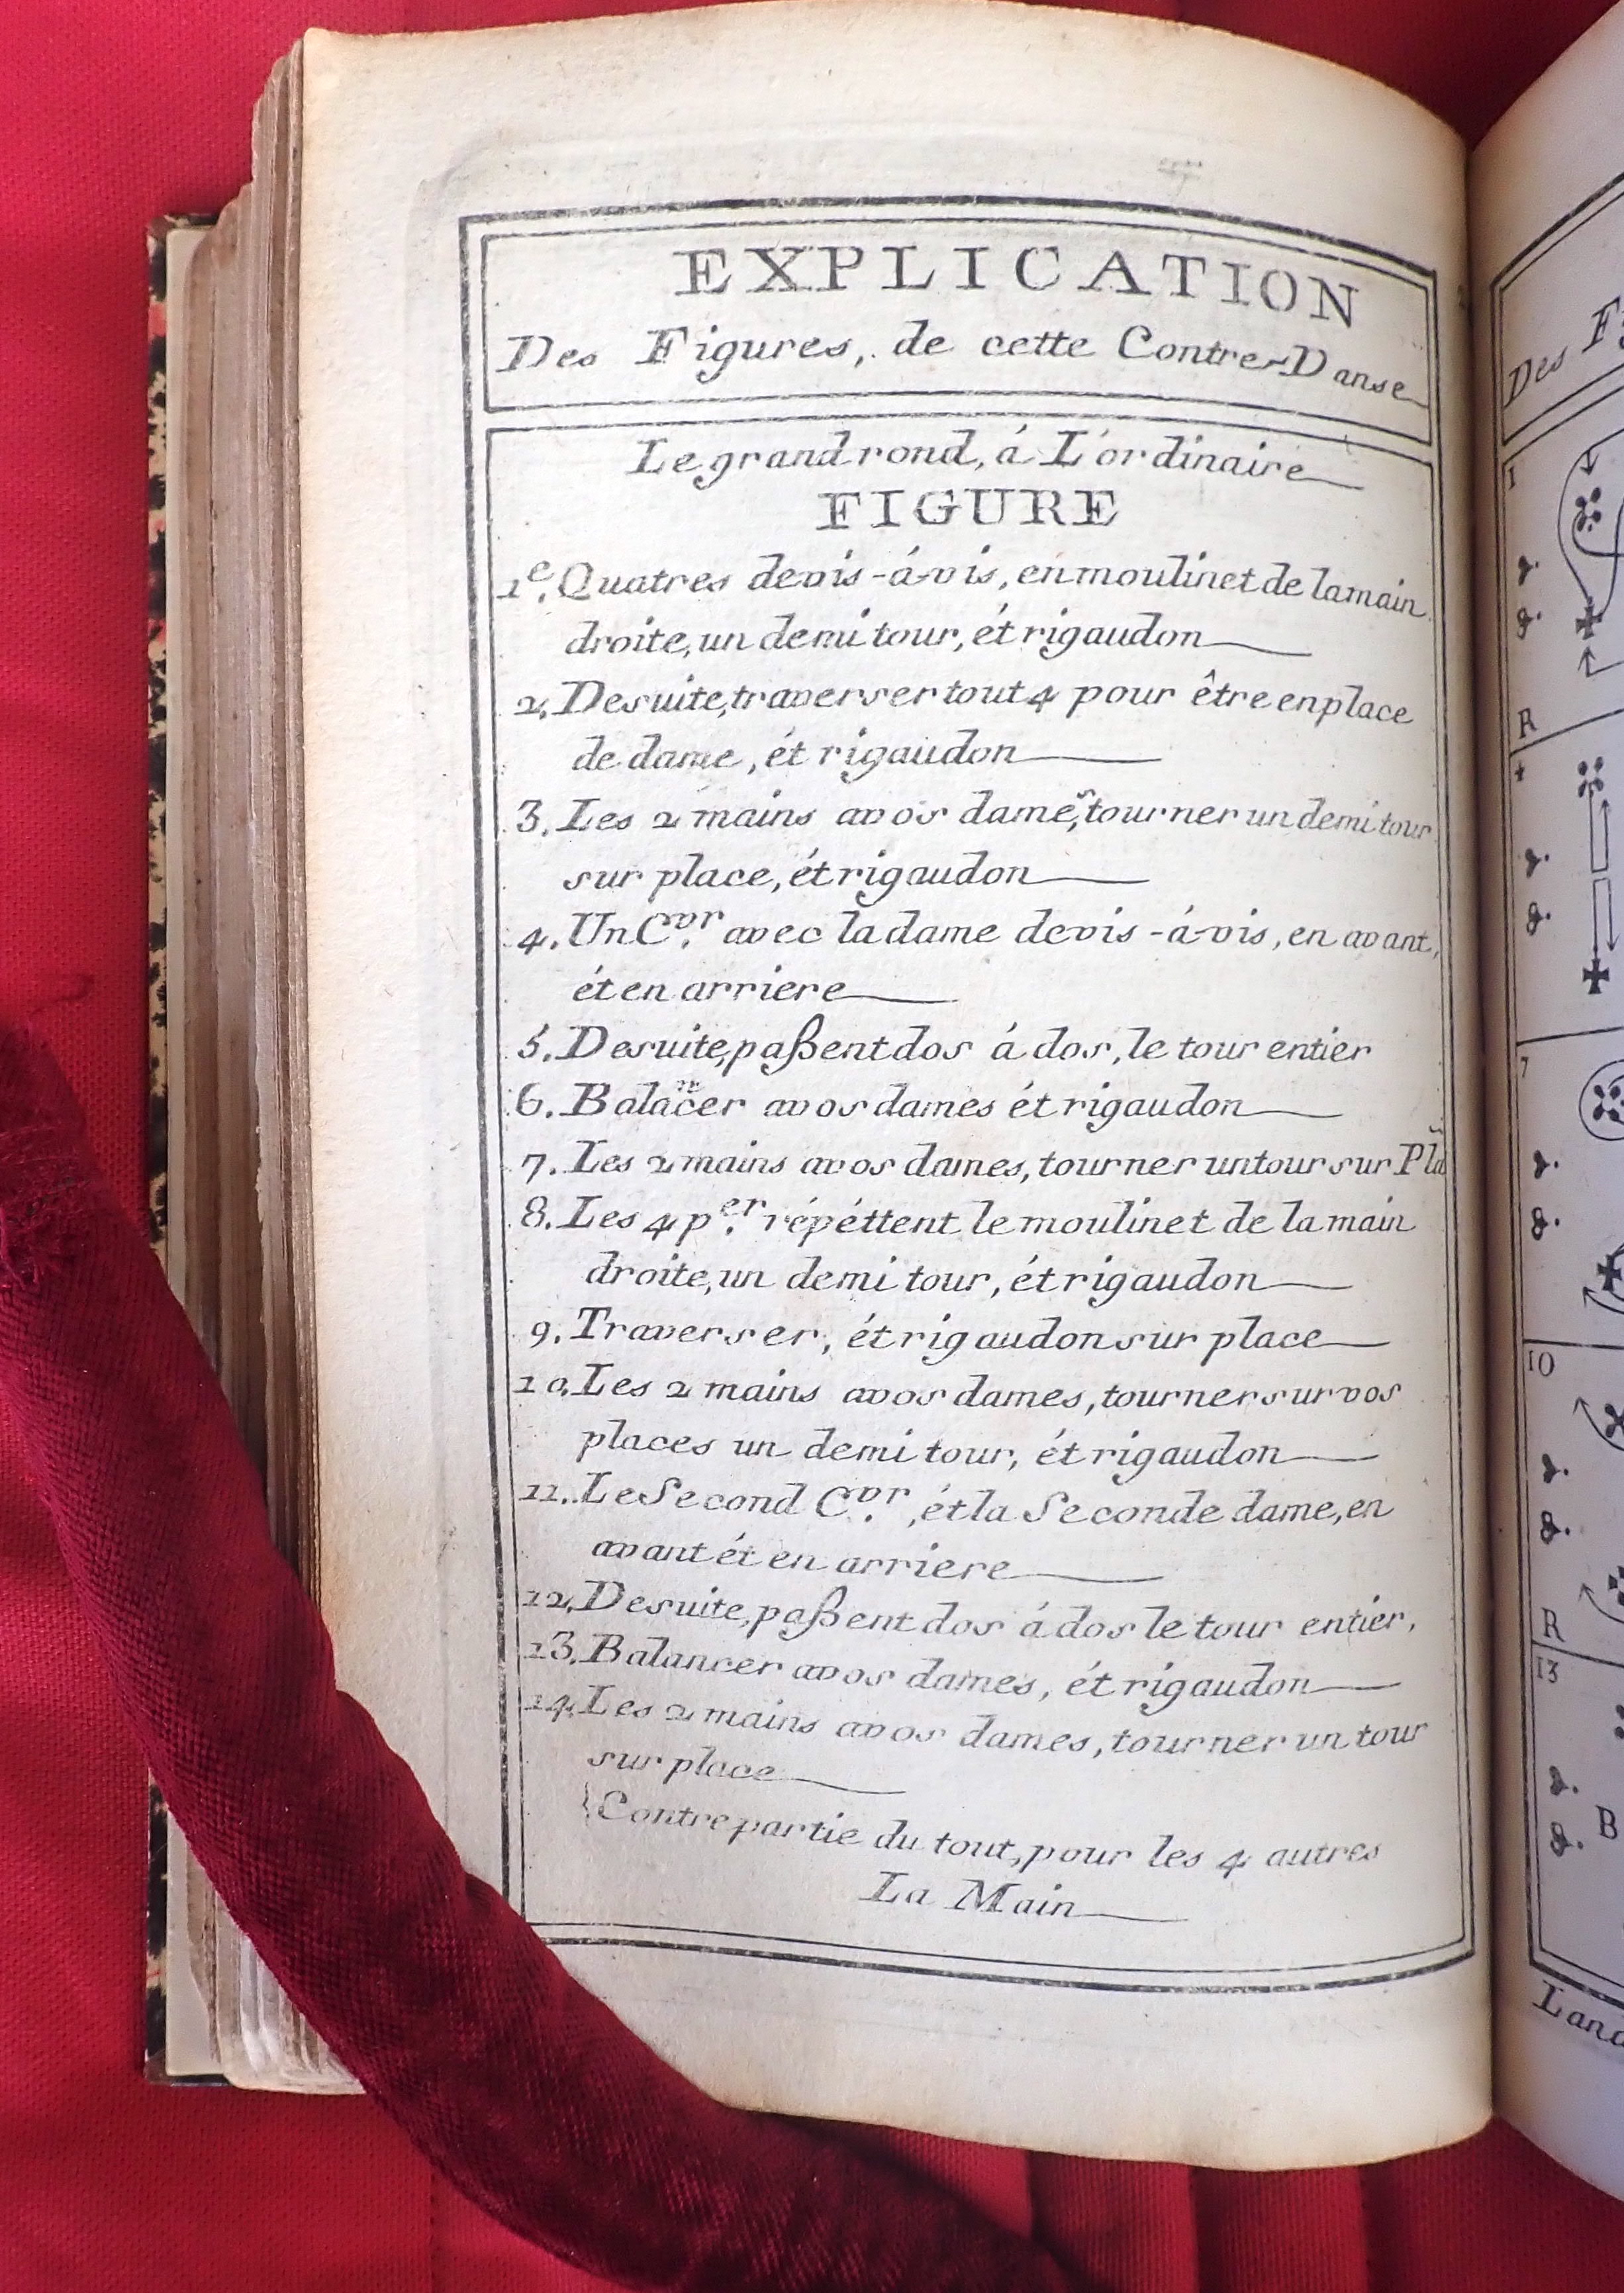 EXPLICATION
Des Figures, de cette Contre-Danse
Le grand rond, á L'ordinaire
FIGURE
1.e Quatres devis-á-vis, en moulinet de la main
droite, un demi tour, ét rigaudon
2. De suite, traverser tout 4 pour être en place
de dame, ét rigaudon
3. Les 2 mains avos dames, tourner un demi tour
sur place, ét rigaudon
4. Un C.vr avec la dame devis-á-vis, en avant,
ét en arriere
5. De suite, paßent dos á dos, le tour entier
6. Balancer avos dames ét rigaudon
7. Les 2 mains avos dames, tourner un tour sur Pla
8. Les 4 p.er répéttent le moulinet de la main
droite, un demi tour, ét rigaudon
9. Traverser, ét rigaudon sur place
10. Les 2 mains avos dames, tourner sur vos
places un demi tour, ét rigaudon
11. Le Second C.vr, ét la Seconde dame, en
avant ét en arriere
12. De suite, paßent dos á dos le tour entier,
13. Balancer avos dames, ét rigaudon
14. Les 2 mains avos dames, tourner un tour
sur place
{Contre partie du tout, pour les 4 autres
La Main
Des
1
R
4
7
10
R
13
B